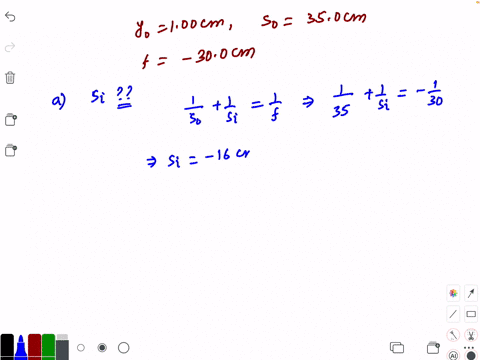 y₀ = 1.00 cm, s₀ = 35.0 cm
f = -30.0 cm
a) si ?? 1/s₀ + 1/si = 1/f ⇒ 1/35 + 1/si = -1/30
⇒ si = -16 cm
AI